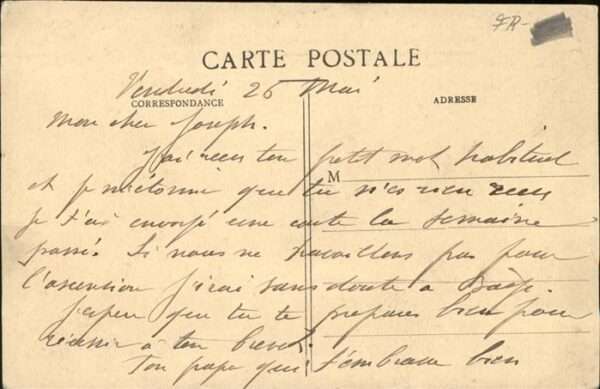 FR-
CARTE POSTALE
Vendredi 26 Mai
CORRESPONDANCE
ADRESSE
Mon cher Joseph.
J'ai reçu ton petit mot habituel
M
et je m'étonne que tu n'es rien reçu
je t'ai envoyé une carte la semaine
passé. Si nous ne travaillons pas pour
l'ascention j'irai sans doute a
J'espère que tu te prépares bien pour
réussir a ton brevet.
Ton papa qui t'embrasse bien